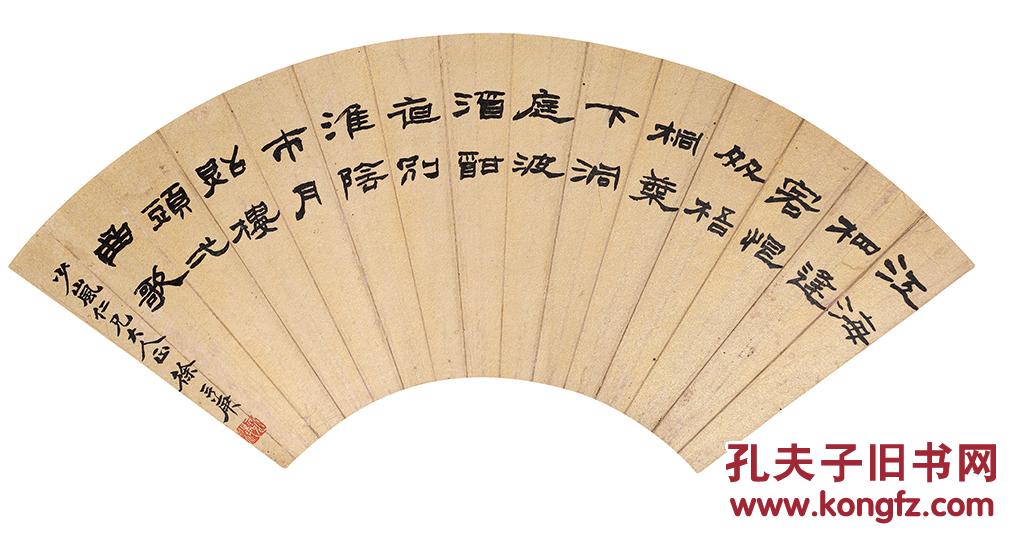 江海
相逢
客恨
多梧
桐葉
下洞
庭波
酒酣
別
淮陰
市月
照樓
頭弌
曲歌
少嵐仁兄大人正 徐三庚
孔夫子旧书网
www.kongfz.com